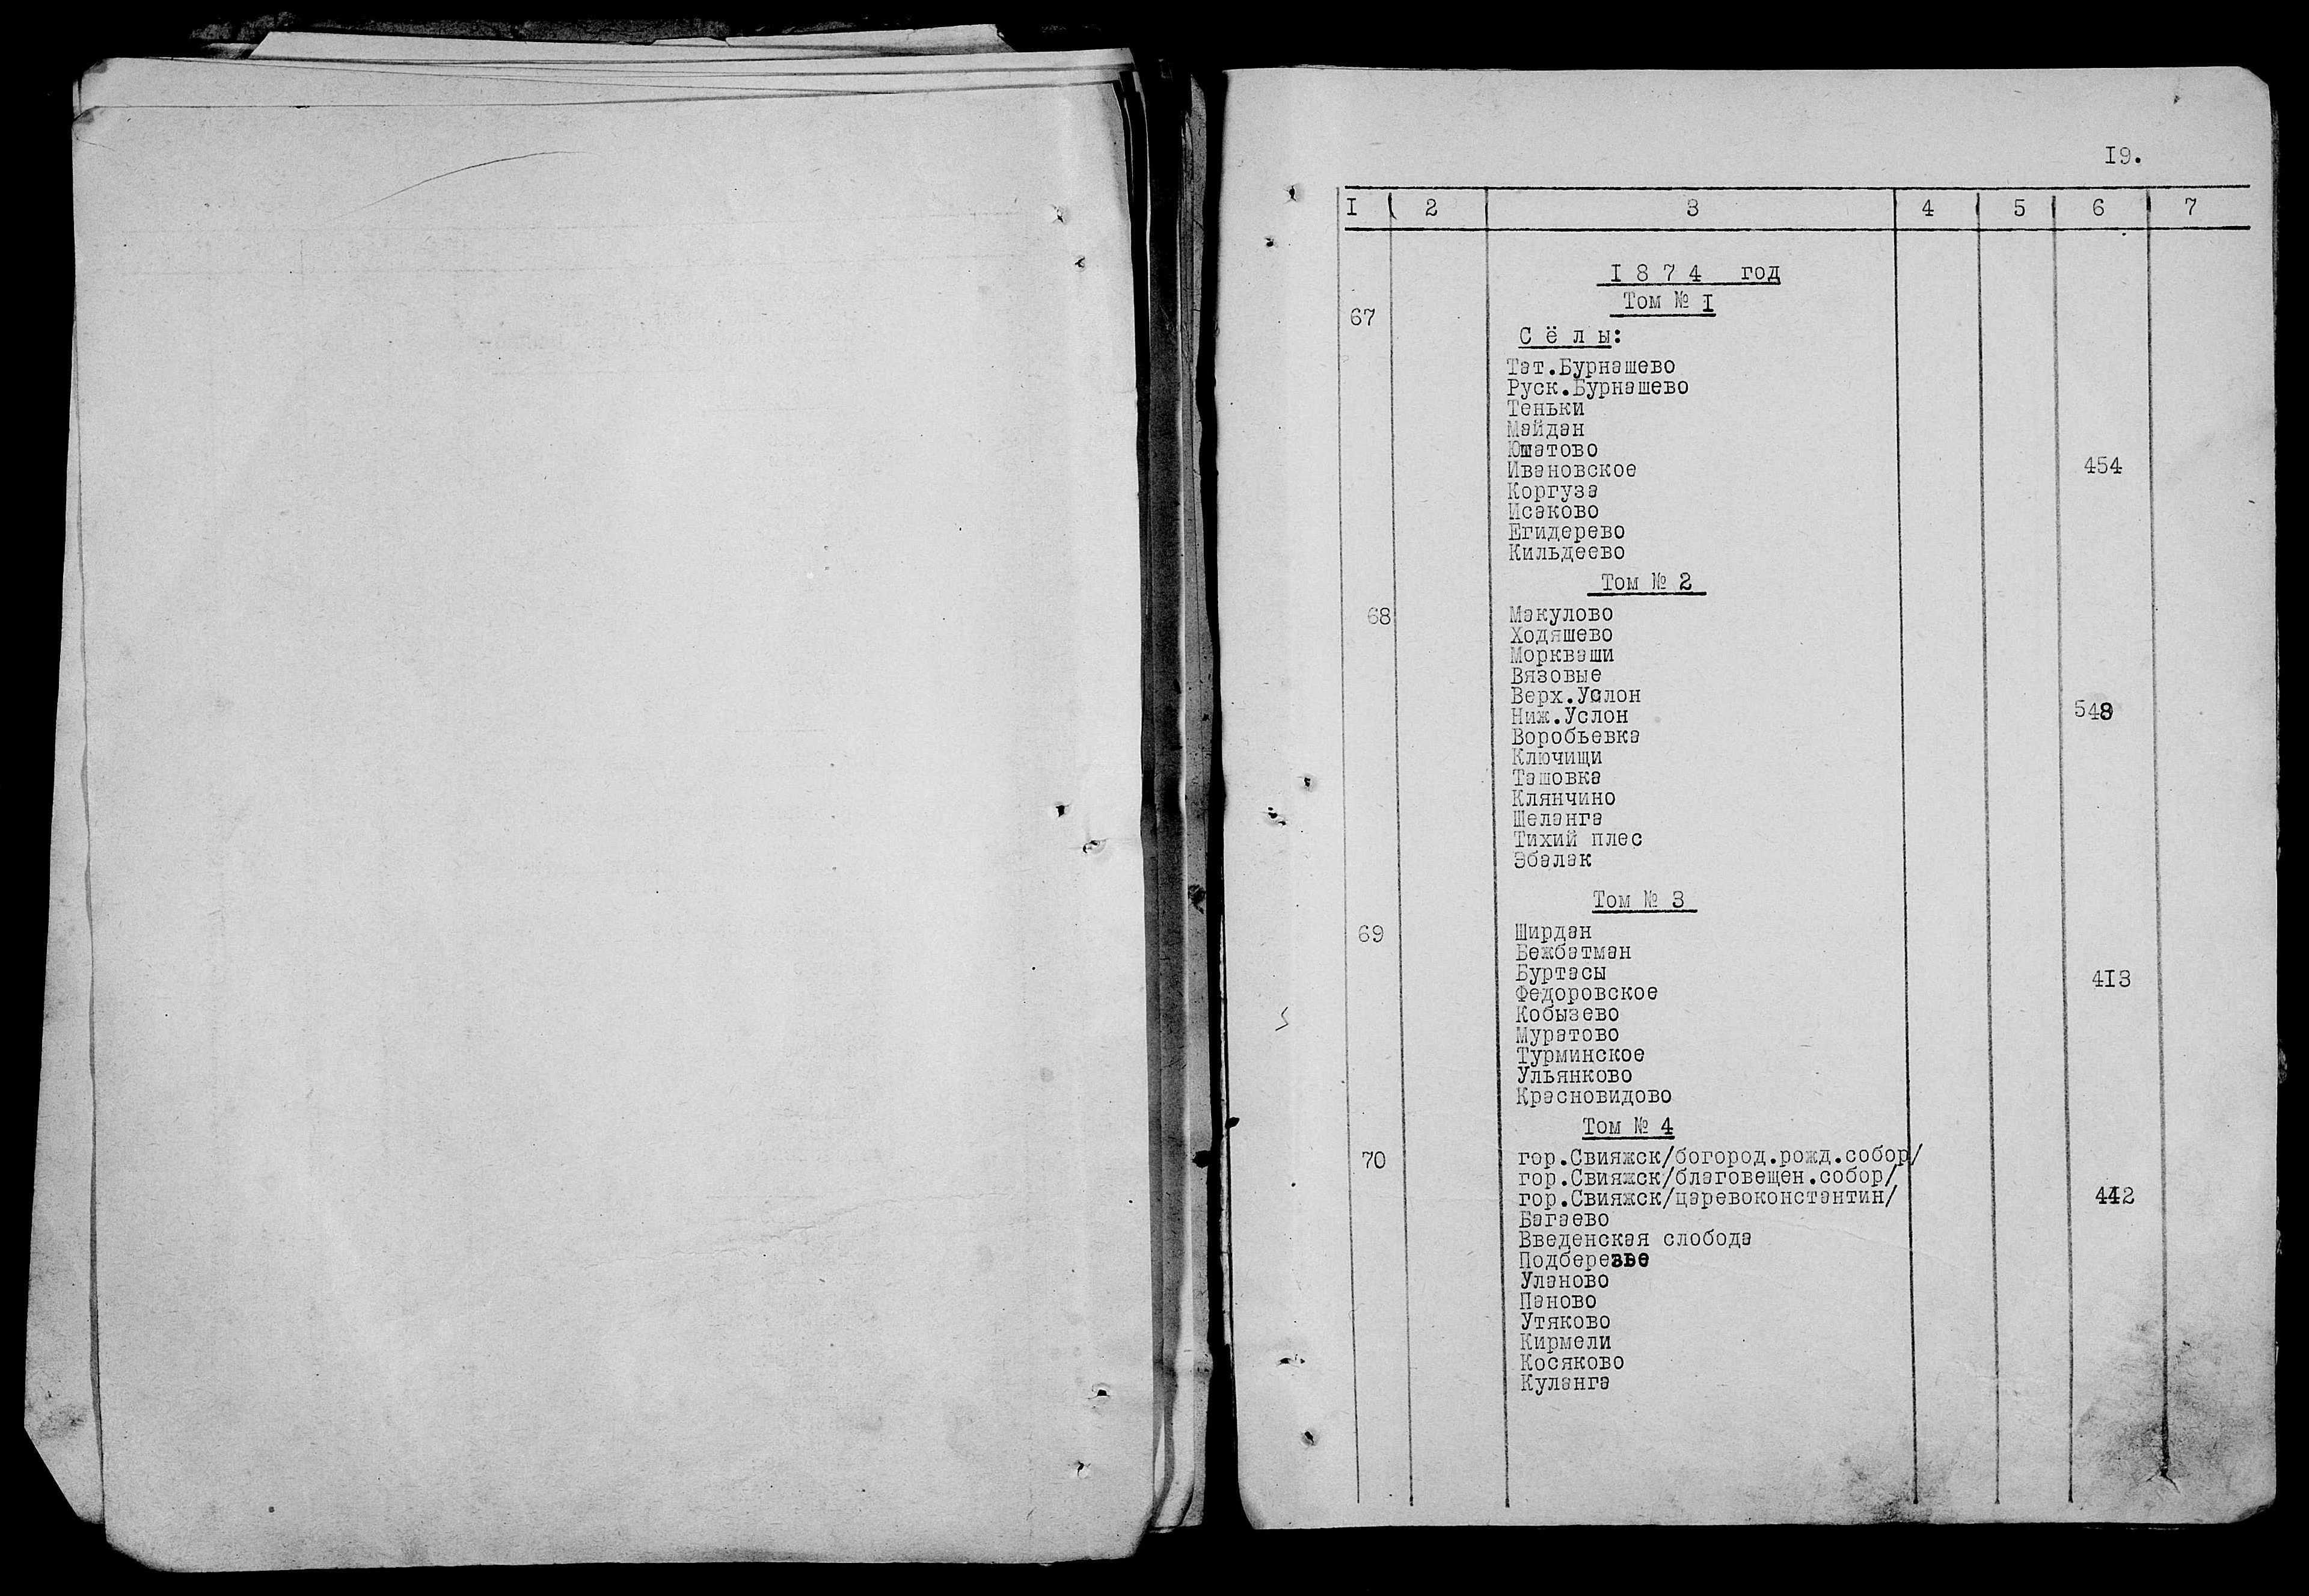 I9.
I 2 3 4 5 6 7
I 8 7 4 год
Том № I
67
С ё л ы:
Тат.Бурнашево
Руск.Бурнашево
Теньки
Майдан
Юматово
Ивановское 454
Коргуза
Исаково
Егидерево
Кильдеево
Том № 2
68 Макулово
Ходяшево
Моркваши
Вязовые
Верх.Услон
Ниж.Услон 548
Воробьевка
Ключищи
Ташовка
Клянчино
Шеланга
Тихий плес
Эбалак
Том № 3
69 Ширдан
Бежбатман
Буртасы 4I3
Федоровское
Кобызево
Муратово
Турминское
Ульянково
Красновидово
Том № 4
70 гор.Свияжск/богород.рожд.собор/
гор.Свияжск/благовещен.собор/
гор.Свияжск/царевоконстантин/ 442
Багаево
Введенская слобода
Подберезье
Уланово
Паново
Утяково
Кирмели
Косяково
Куланга